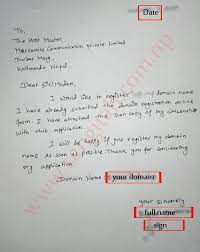 Date
To,
The Host Master,
Mercantile Communication private Limited
Durbar Marg,
Kathmandu Nepal.
Dear Sir/Madam,
I would like to register domain name
I have already submitted the domain registration online
form. I have attached the Scan copy of my citizenship
with this application.
I will be happy if you register my domain
name as soon as possible. Thank you for considering
my application
Domain Name: your domain
Your sincerely
fullname
sign